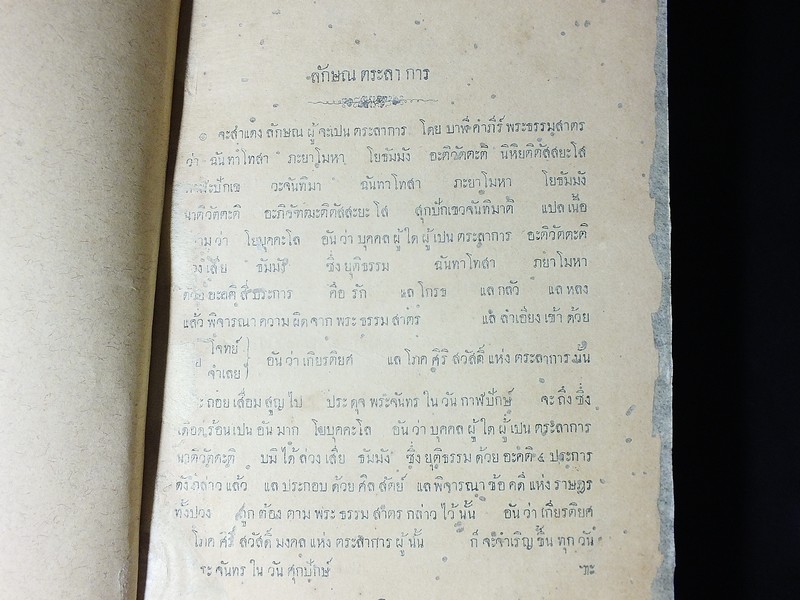 ลักษณ ตระลา การ
๏ จะสำแดง ลักษณ ผู้ จะเปน ตระลาการ โดย บาฬีคำภีร์ พระธรรมสาตร
ว่า ฉันทาโทสา ภะยาโมหา โยธัมมัง อะติวัตตะติ นิหิยติตัสสยะโส
วะจันทิมา ฉันทาโทสา ภะยาโมหา โยธัมมัง
นาติวัตตะติ อะภิรัฑฒะติตัสสะยะ โส สุกปักเขวจันทิมาติ แปล เนื้อ
ความ ว่า โยบุคคะโล อันว่า บุคคล ผู้ ใด ผู้ เปน ตระลาการ อะติวัตตะติ
ล่วง เสีย ธัมมัง ซึ่ง ยุติธรรม ฉันทาโทสา ภยาโมหา
ด้วย อะคติ สี่ ประการ คือ รัก แล โกรธ แล กลัว แล หลง
แล้ว พิจารณา ความ ผิด จาก พระ ธรรม สาตร แล ลำเอียง เข้า ด้วย
โจทย์
จำเลย
อันว่า เกียรติยศ แล โภค ศิริ สวัสดิ์ แห่ง ตระลาการ นั้น
ถอย เสื่อม สูญ ไป ประดุจ พระจันทร ใน วัน กาฬปักษ์ จะ ถึง ซึ่ง
เดือด ร้อน เปน อัน มาก โยบุคคะโล อันว่า บุคคล ผู้ ใด ผู้ เปน ตระลาการ
นาติวัตตะติ บมิ ได้ ล่วง เสีย ธัมมัง ซึ่ง ยุติธรรม ด้วย อะคติ ๔ ประการ
ดัง กล่าว แล้ว แล ประกอบ ด้วย ศีล สัตย์ แล พิจารณา ข้อ คดี แห่ง ราษฎร
ทั้งปวง ถูก ต้อง ตาม พระ ธรรม สาตร กล่าว ไว้ นั้น อันว่า เกียรติยศ
โภค ศิริ สวัสดิ์ มงคล แห่ง ตระลาการ ผู้ นั้น ก็ จะจำเริญ ขึ้น ทุก วัน
จันทร ใน วัน ศุกปักษ์ ฯะ